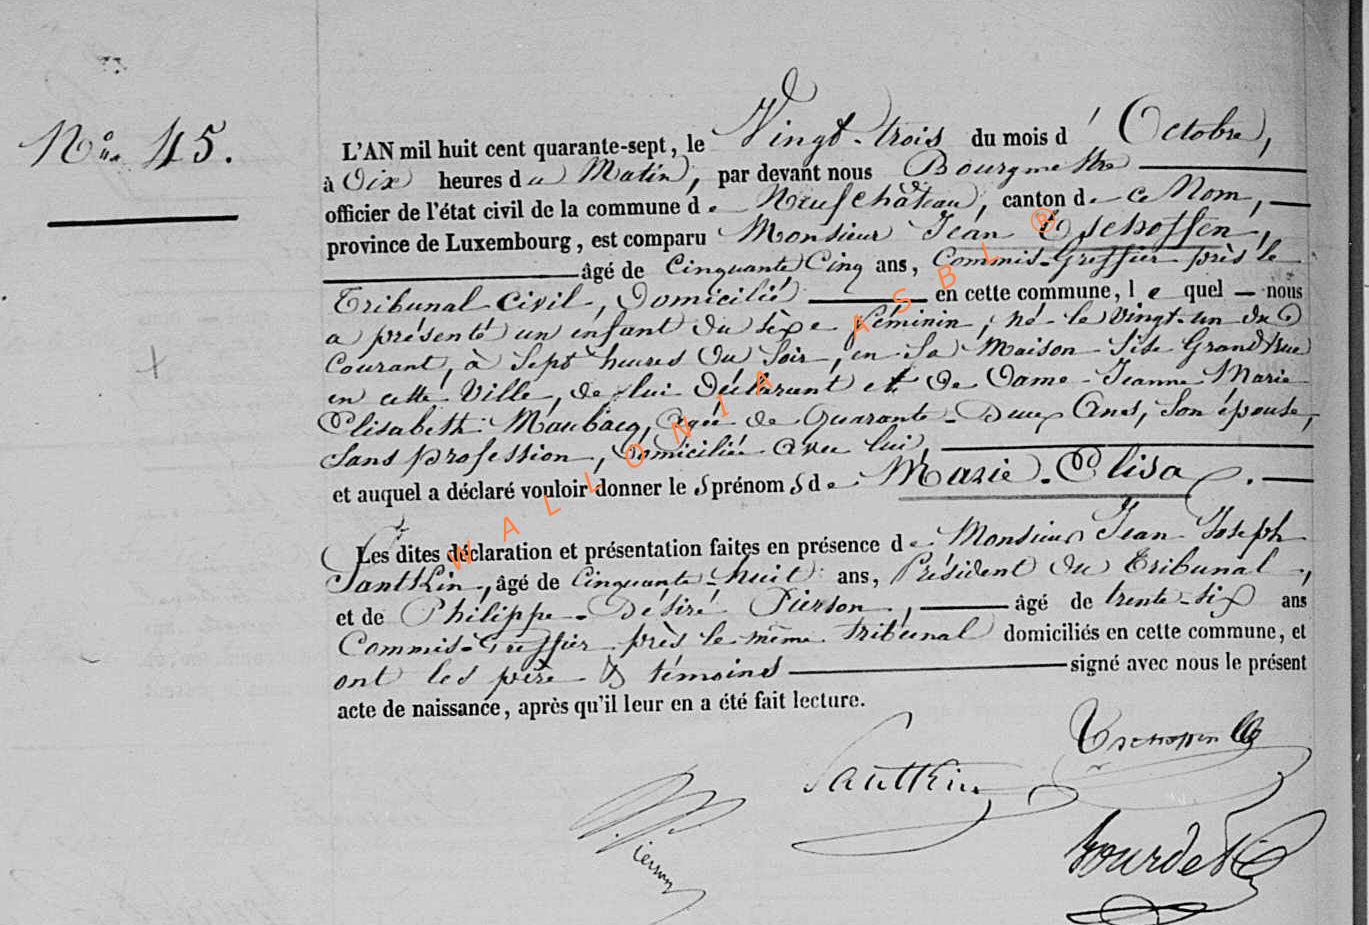 Nro 45.
L'AN mil huit cent quarante-sept, le Vingt-trois du mois d'Octobre,
à Dix heures du Matin, par devant nous Bourgmestre
officier de l'état civil de la commune de Neufchâteau, canton de ce Nom,
province de Luxembourg, est comparu Monsieur Jean Tschoffen,
âgé de Cinquante Cinq ans, Commis-Greffier près le
Tribunal Civil, Domicilié en cette commune, lequel nous
a présenté un enfant du sèxe féminin, né le Vingt-un du
Courant, à Sept heures du Soir, en sa Maison Sise Grand'Rue
en cette Ville, de lui Déclarant et de Dame Jeanne Marie
Elisabeth Maubacq, agée de Quarante-Deux Ans, Son épouse,
Sans profession, domiciliée avec lui,
et auquel a déclaré vouloir donner les prénoms de Marie-Elisa.
Les dites déclaration et présentation faites en présence de Monsieur Jean Joseph
Santkin, âgé de Cinquante-huit ans, Président du Tribunal,
et de Philippe-Désiré Pierson, âgé de trente-six ans
Commis-Greffier près le même tribunal domiciliés en cette commune, et
ont les père & témoins signé avec nous le présent
acte de naissance, après qu'il leur en a été fait lecture.
Tschoffen
Santkin
Pierson
Bourdet
WALLONIA ASBL ®